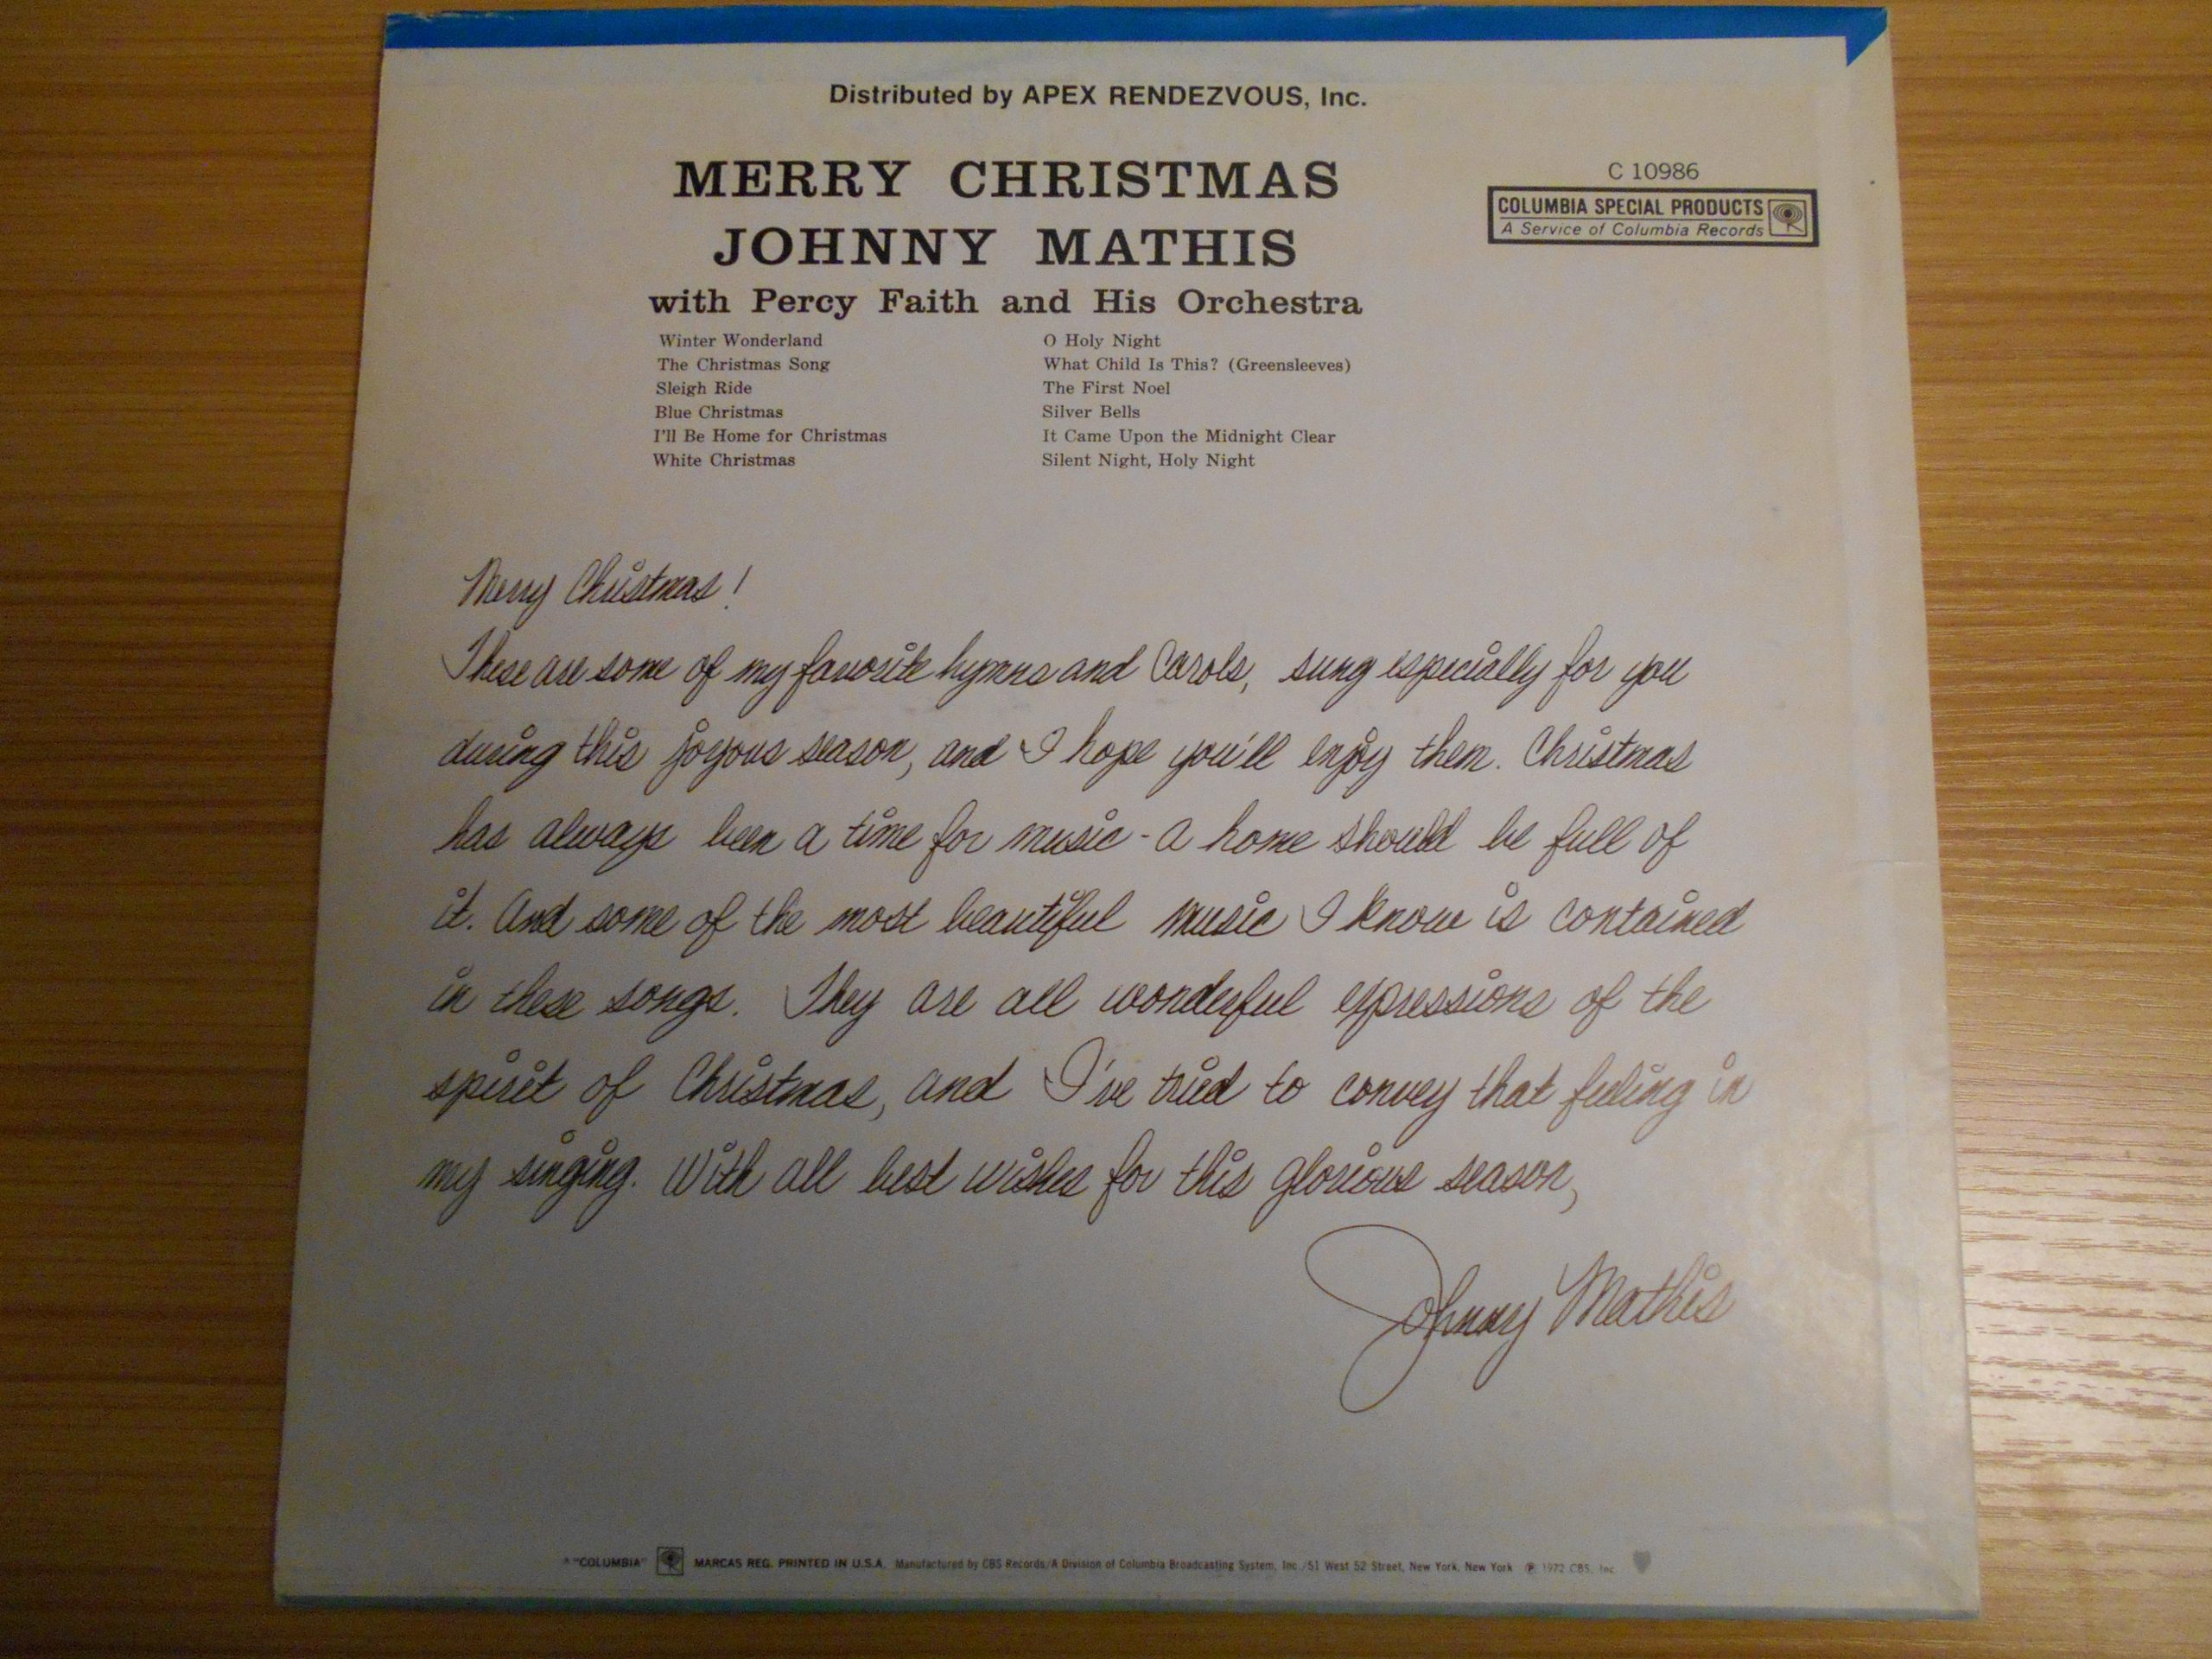 Distributed by APEX RENDEZVOUS, Inc.
MERRY CHRISTMAS
JOHNNY MATHIS
with Percy Faith and His Orchestra
C 10986
COLUMBIA SPECIAL PRODUCTS
A Service of Columbia Records
Winter Wonderland
The Christmas Song
Sleigh Ride
Blue Christmas
I'll Be Home for Christmas
White Christmas
O Holy Night
What Child Is This? (Greensleeves)
The First Noel
Silver Bells
It Came Upon the Midnight Clear
Silent Night, Holy Night
Merry Christmas!
These are some of my favorite hymns and Carols, sung especially for you
during this joyous season, and I hope you'll enjoy them. Christmas
has always been a time for music - a home should be full of
it. And some of the most beautiful music I know is contained
in these songs. They are all wonderful expressions of the
spirit of Christmas, and I've tried to convey that feeling in
my singing. With all best wishes for this glorious season,
Johnny Mathis
"COLUMBIA" MARCAS REG. PRINTED IN U.S.A. Manufactured by CBS Records/A Division of Columbia Broadcasting System, Inc./51 West 52 Street, New York, New York ℗ 1972 CBS, Inc.